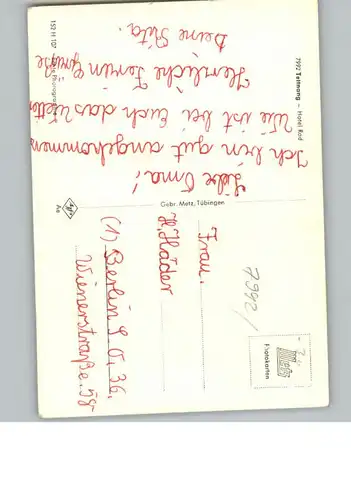 7992 Tettnang – Hotel Rad
Liebe Oma!
Ich bin gut angekommen
Wie ist bei Euch das Wetter
Herzliche Ferien Grüße
Deine Rita.
152 H 107
Gebr. Metz, Tübingen
Frau.
H. Häder
(1) Berlin S O, 36.
Wienerstraße. 58
7992/
Metz
Fixfotokarten